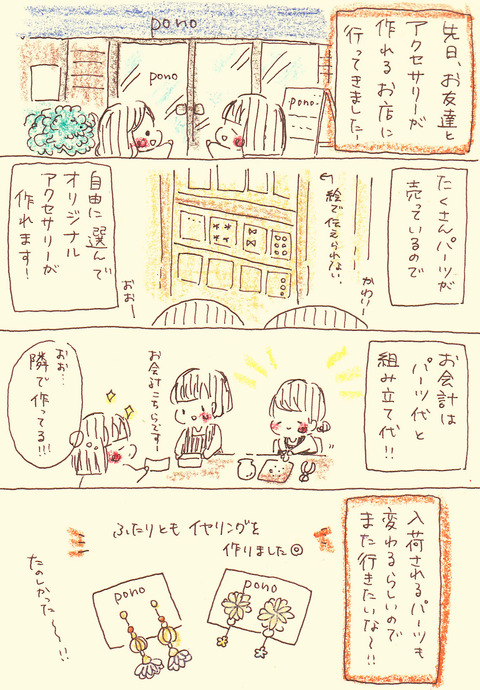 先日、お友達と
アクセサリーが
作れるお店に
行ってきました！
pono
pono
pono
たくさんパーツが
売っているので
かわいー
絵で伝えられない。
おおー
自由に選んで
オリジナル
アクセサリーが
作れます！
お会計は
パーツ代と
組み立て代!!
お会計こちらですー
おぉ…
隣で作ってる!!!
入荷されるパーツも
変わるらしいので
また行きたいな〜!!
ふたりとも イヤリングを
作りました◎
pono
pono
たのしかった〜〜!!